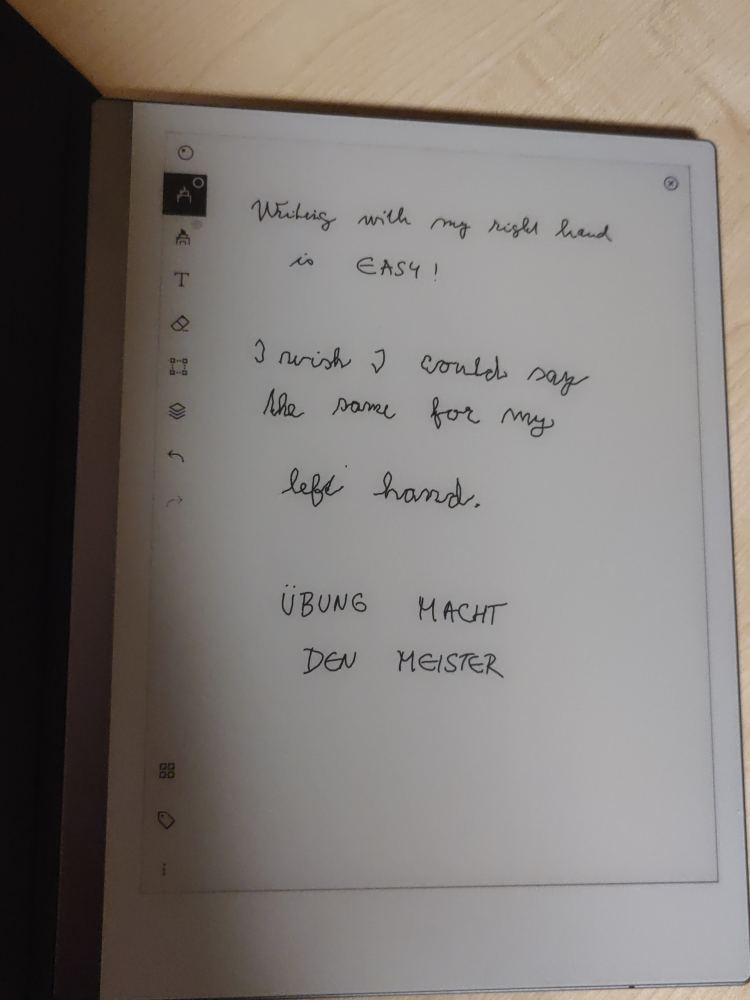 Writing with my right hand
is EASY!
I wish I could say
the same for my
left hand.
ÜBUNG MACHT
DEN MEISTER